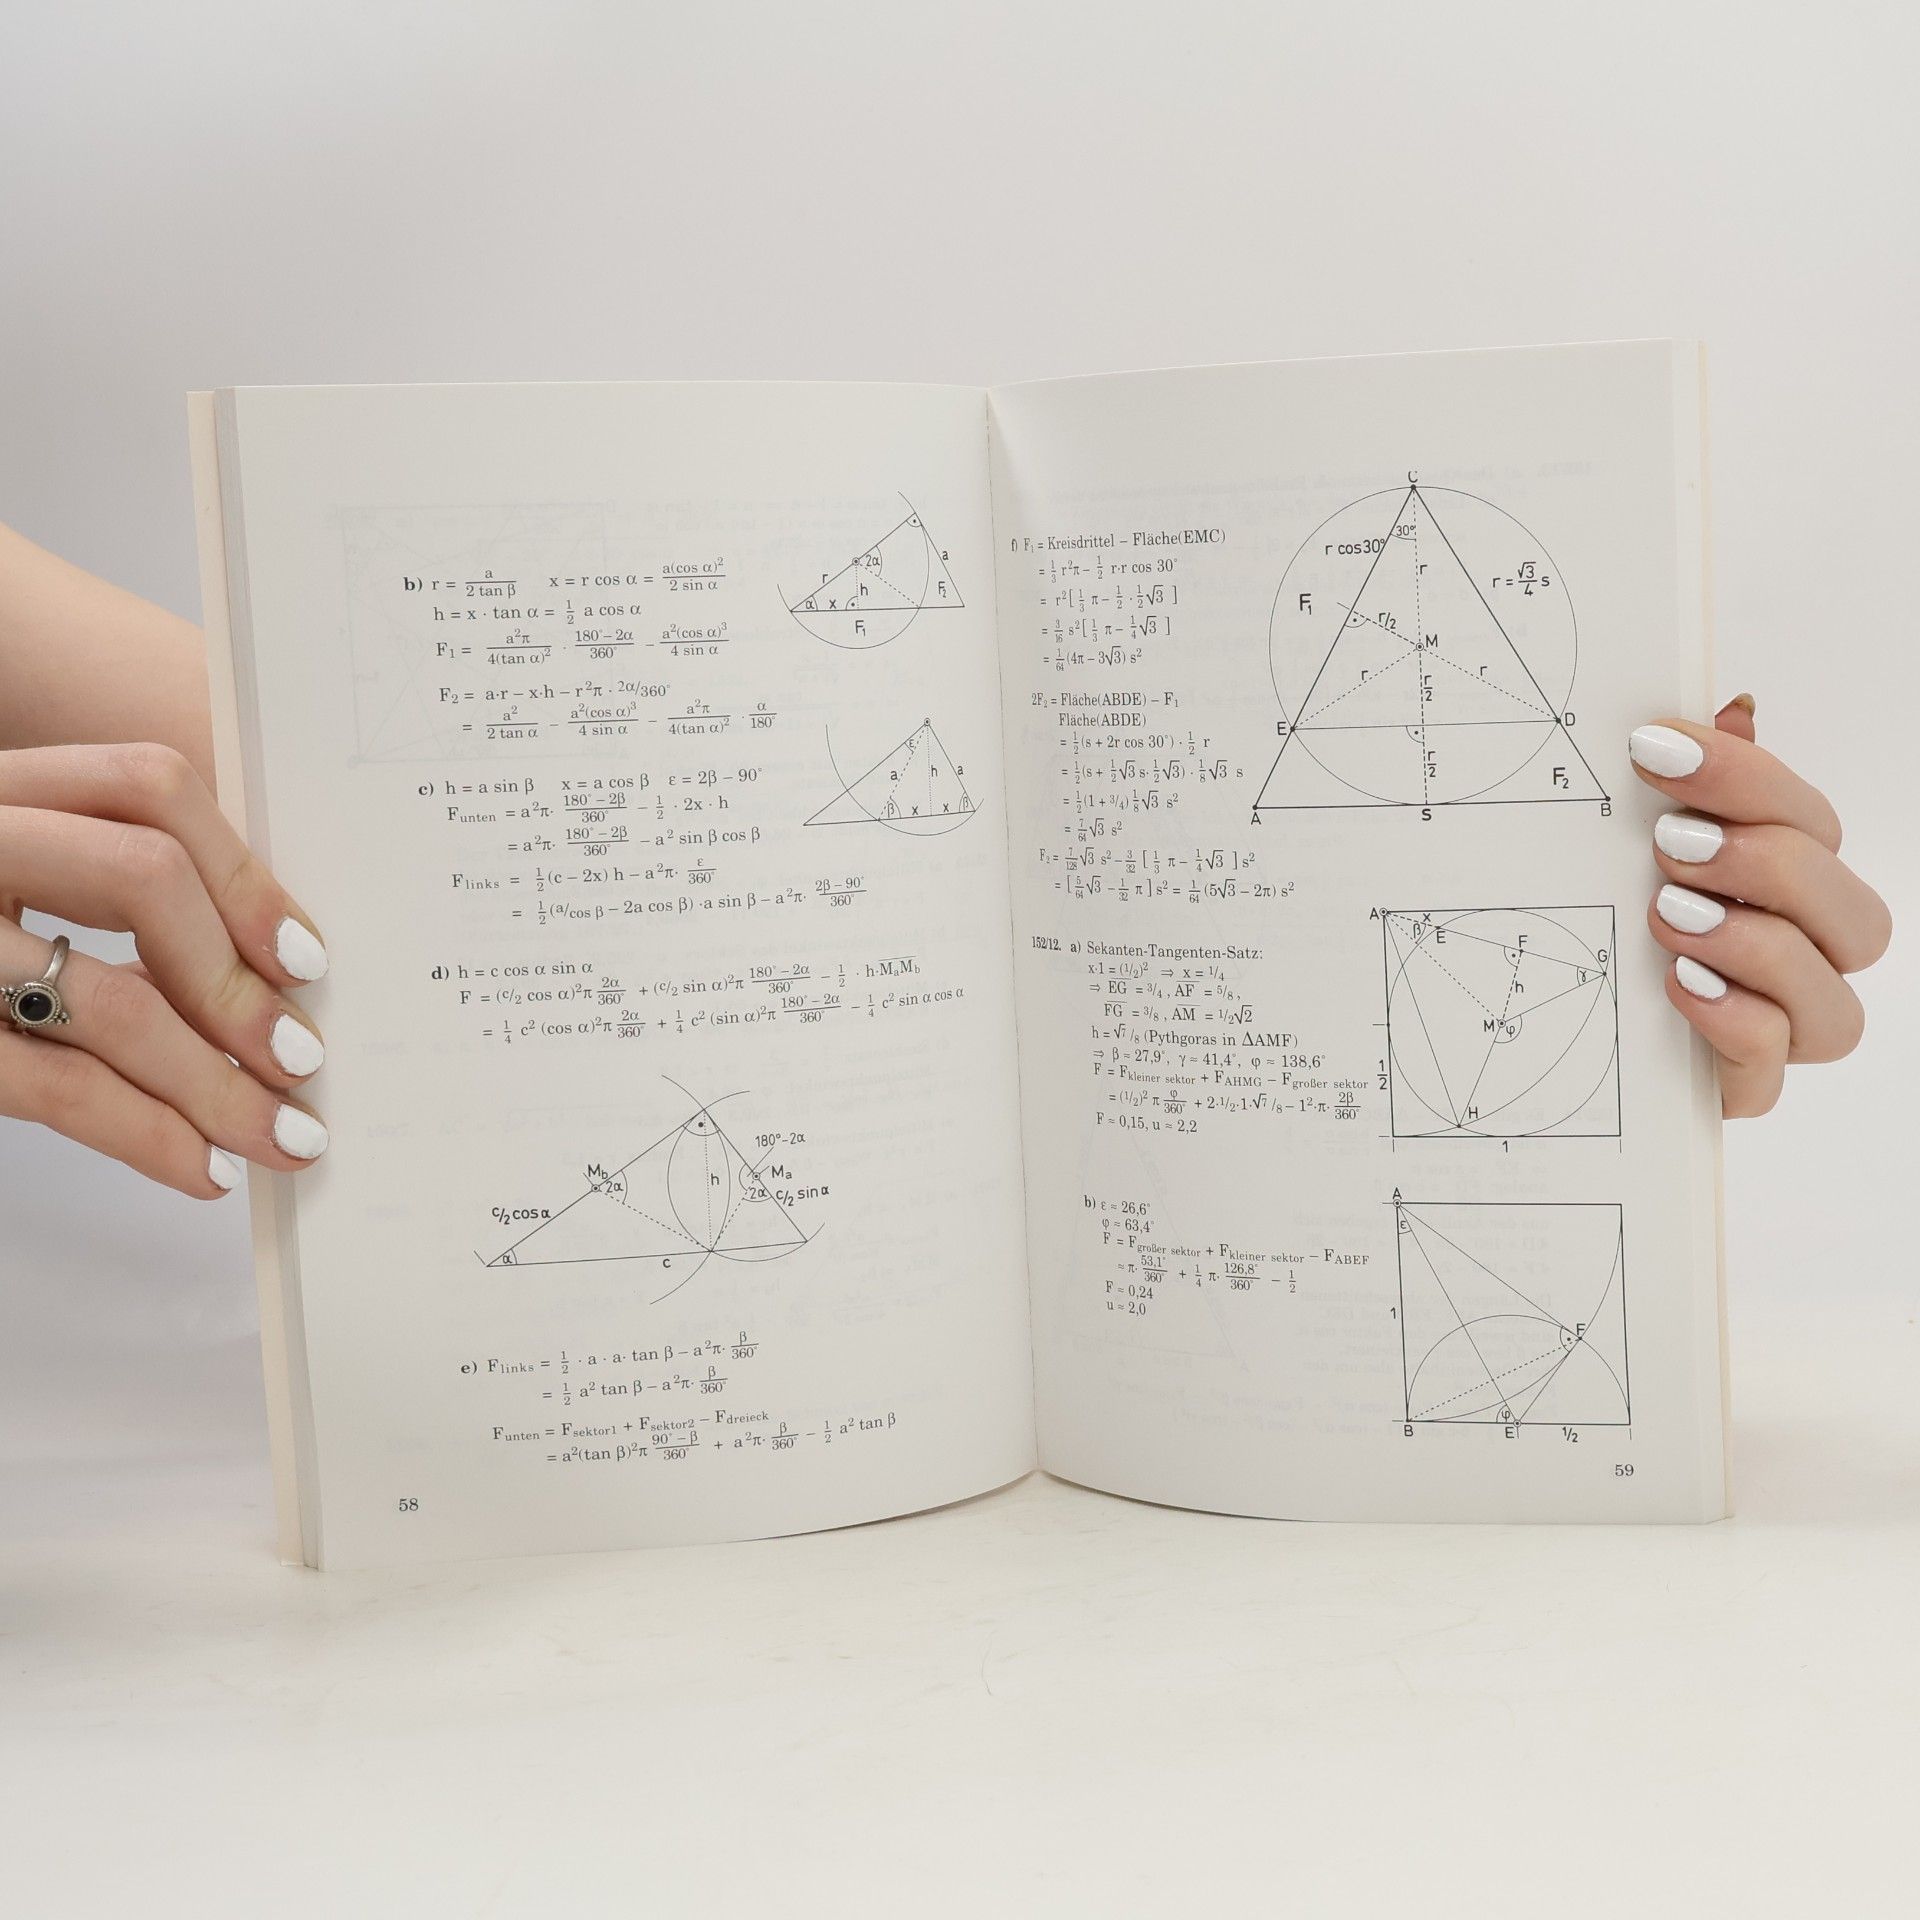 b) r = a / 2 tan β    x = r cos α = a(cos α)² / 2 sin α
h = x · tan α = 1/2 a cos α
F₁ = a²π / 4(tan α)² · 180°−2α / 360° − a²(cos α)³ / 4 sin α
F₂ = a·r − x·h − r²π · 2α/360°
= a² / 2 tan α − a²(cos α)³ / 4 sin α − a²π / 4(tan α)² · α / 180°
r
2α
a
h
α
x
F₁
F₂
c) h = a sin β    x = a cos β    ε = 2β − 90°
Funten = a²π· 180°−2β / 360° − 1/2 · 2x · h
= a²π· 180°−2β / 360° − a² sin β cos β
Flinks = 1/2 (c − 2x) h − a²π· ε / 360°
= 1/2 (a/cos β − 2a cos β) ·a sin β − a²π· 2β−90° / 360°
ε
a
h
a
β
x
x
β
d) h = c cos α sin α
F = (c/2 cos α)²π 2α / 360° + (c/2 sin α)²π 180°−2α / 360° − 1/2 · h·MaMb
= 1/4 c² (cos α)²π 2α / 360° + 1/4 c² (sin α)²π 180°−2α / 360° − 1/4 c² sin α cos α
180°−2α
Mb
2α
h
Ma
2α
c/2 sin α
c/2 cos α
α
c
e) Flinks = 1/2 · a · a· tan β − a²π· β / 360°
= 1/2 a² tan β − a²π· β / 360°
Funten = Fsektor1 + Fsektor2 − Fdreieck
= a²(tan β)²π 90°−β / 360° + a²π· β / 360° − 1/2 a² tan β
58
f) F₁ = Kreisdrittel − Fläche(EMC)
= 1/3 r²π − 1/2 r·r cos 30°
= r² [ 1/3 π − 1/2 · 1/2 √3 ]
= 3/16 s² [ 1/3 π − 1/4 √3 ]
= 1/64 (4π − 3√3) s²
2F₂ = Fläche(ABDE) − F₁
Fläche(ABDE)
= 1/2 (s + 2r cos 30°) · 1/2 r
= 1/2 (s + 1/2 √3 s· 1/2 √3) · 1/8 √3 s
= 1/2 (1 + 3/4) 1/8 √3 s²
= 7/64 √3 s²
F₂ = 7/128 √3 s² − 3/32 [ 1/3 π − 1/4 √3 ] s²
= [ 5/64 √3 − 1/32 π ] s² = 1/64 (5√3 − 2π) s²
C
30°
r cos30°
r
r = √3/4 s
F₁
r/2
M
r
r/2
r
E
D
r/2
F₂
A
S
B
152/12. a) Sekanten-Tangenten-Satz:
x·1 = (1/2)² ⇒ x = 1/4
⇒ EG = 3/4 , AF = 5/8 ,
FG = 3/8 , AM = 1/2√2
h = √7/8 (Pythgoras in ΔAMF)
⇒ β ≈ 27,9°, γ ≈ 41,4°, φ ≈ 138,6°
F = Fkleiner sektor + FAHMG − Fgroßer sektor
= (1/2)² π φ / 360° + 2·1/2·1·√7/8 − 1²·π· 2β / 360°
F ≈ 0,15, u ≈ 2,2
A
x
β
E
F
G
γ
h
M
φ
1/2
H
1
b) ε ≈ 26,6°
φ ≈ 63,4°
F = Fgroßer sektor + Fkleiner sektor − FABEF
≈ π· 53,1° / 360° + 1/4 π· 126,8° / 360° − 1/2
F ≈ 0,24
u ≈ 2,0
A
ε
1
F
φ
B
E
1/2
59